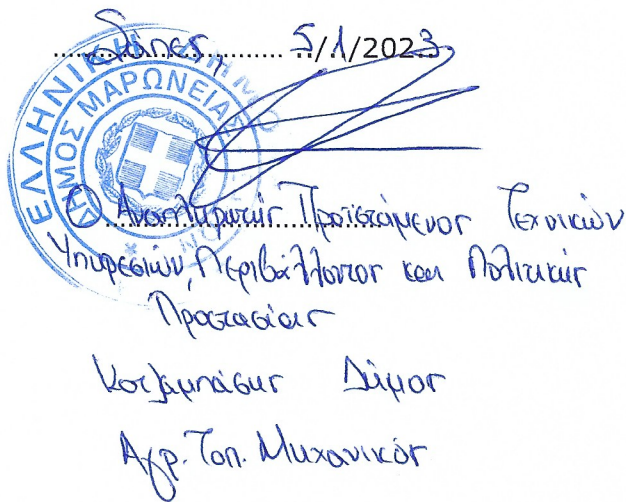 Σάπες, 5/1/2023
ΕΛΛΗΝΙΚΗ ΔΗΜΟ
ΔΗΜΟΣ ΜΑΡΩΝΕΙΑΣ
Ο Αναπληρωτής Προϊστάμενος Τεχνικών
Υπηρεσιών, Περιβάλλοντος και Πολιτικής
Προστασίας
Κοτζαμπάσης Δήμος
Αγρ. Τοπ. Μηχανικός